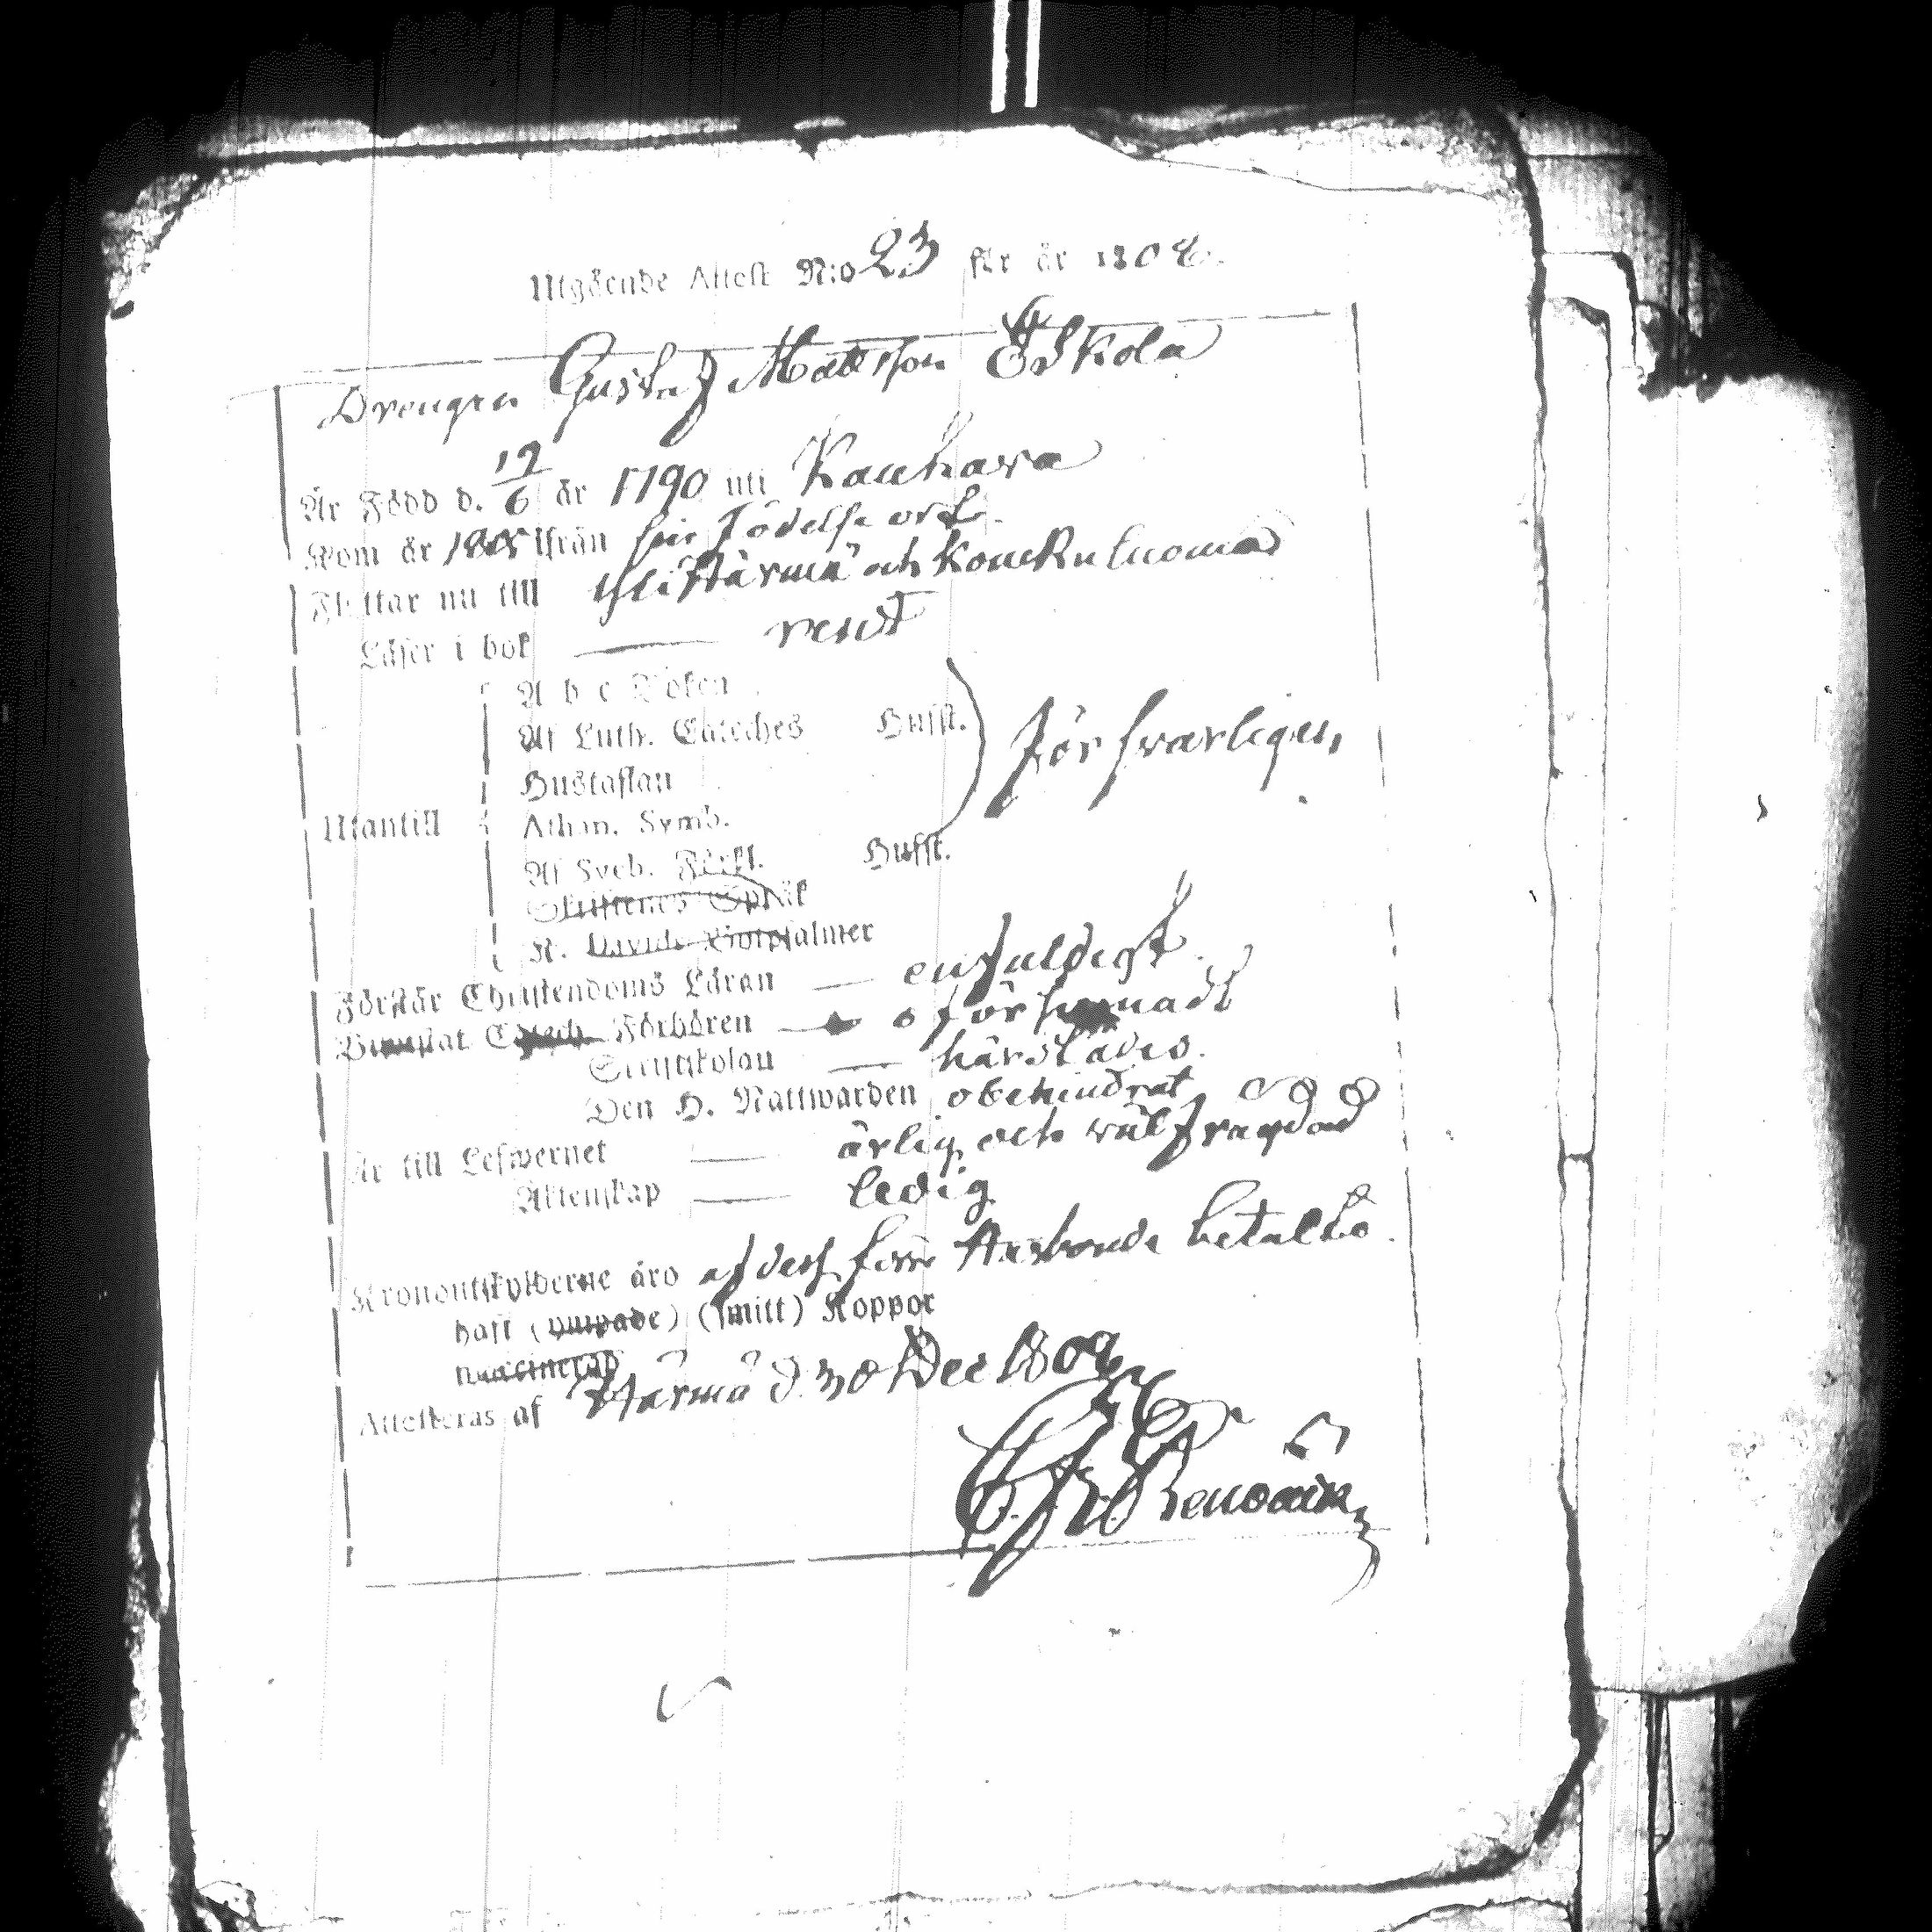 Utgående Attest N:o 23 för år 1808.
Drengen Gustaf Mattsson Eskola
Är Född d. 12/6 år 1790 uti Kauhava
Kom år 1805 ifrån sin Födelse ort.
Flyttar nu till Ylihärmä och Koukulnoma
Läser i bok — rent
A b c Boken
Af Luth. Cateches Hufst.
Hustaflan
Utantill
Athan. Symb.
Försvarligen,
Af Sveb. Förkl. Hufst.
Skriftenes Språk
K. Davids Botpsalmer
Förstår Christendoms Läran — enfaldigt.
Bevistat Catech. Förhören — oförsumadt
Skriftskolan — härstädes.
Den H. Nattwarden obehindrat
Är till Lefwernet — ärlig och wälfrägdad
Äktenskap — ledig
Kronoutskylderne äro af dess förre Husbonde betalte.
haft (ympade) (smitt) Koppor
vaccinerad
Attesteras af Härmä d. 30 Dec 1809